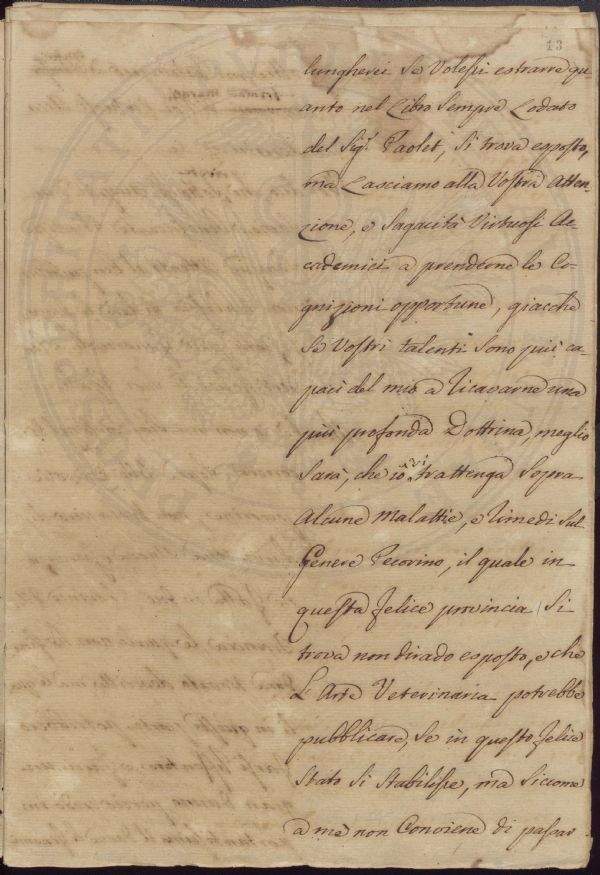 13
lungherei se Volessi estrarre qu
anto nel Libro sempre Lodato
del Sig.r Paolet, si trova esposto,
ma Lasciamo alla Vostra Atten-
zione, e Sagacità Virtuosi Ac-
cademici a prenderne le Co-
gnizioni opportune, giacchè
Se Vostri talenti Sono più ca-
paci del mio a ricavarne una
più profonda Dottrina, meglio
Sarà, che io vi trattenga Sopra
Alcune Malattie, e Rimedi Sul
Genere Pecorino, il quale in
questa felice provincia Si
trova non dirado esposto, e che
L'Arte Veterinaria potrebbe
pubblicare, Se in questo felice
Stato Si Stabilisse, ma Siccome
a me non Conviene di passar